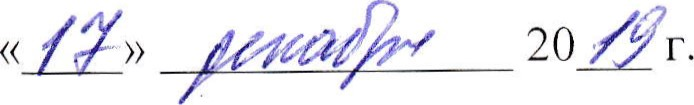 «17» декабря 2019 г.